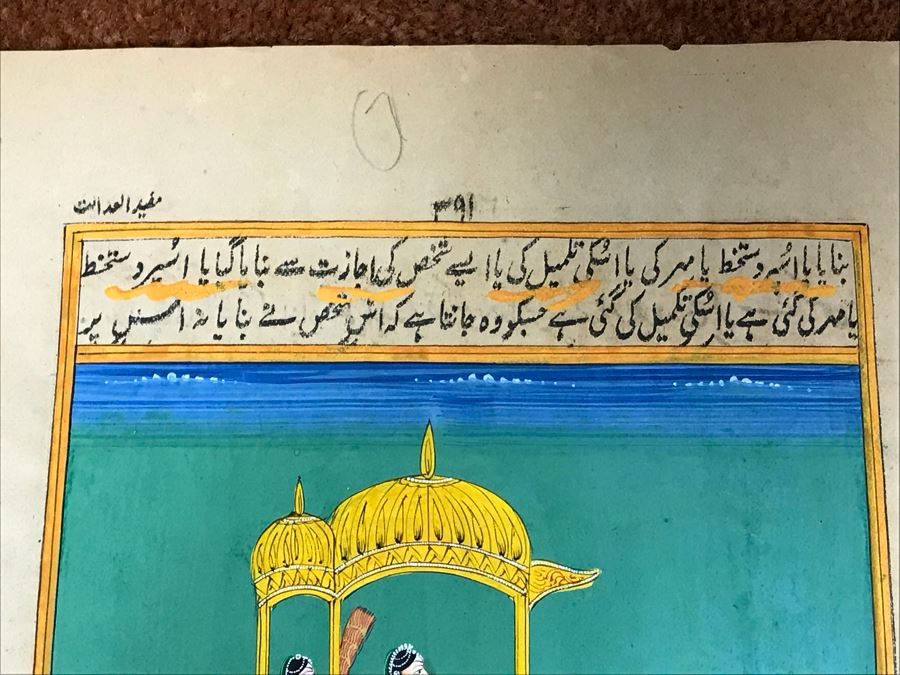 مفید العدالت
۳۹۱
بنایا یا اسُپر دستخط یا مہر کی یا اسُکی تکمیل کی یا ایسے شخص کی اجازت سے بنایا گیا یا اسُپر دستخط
یا مہر کی گئی ہے یا اسُکی تکمیل کی گئی ہے جسکو وہ جانتا ہے کہ اس شخص نے بنایا نہ